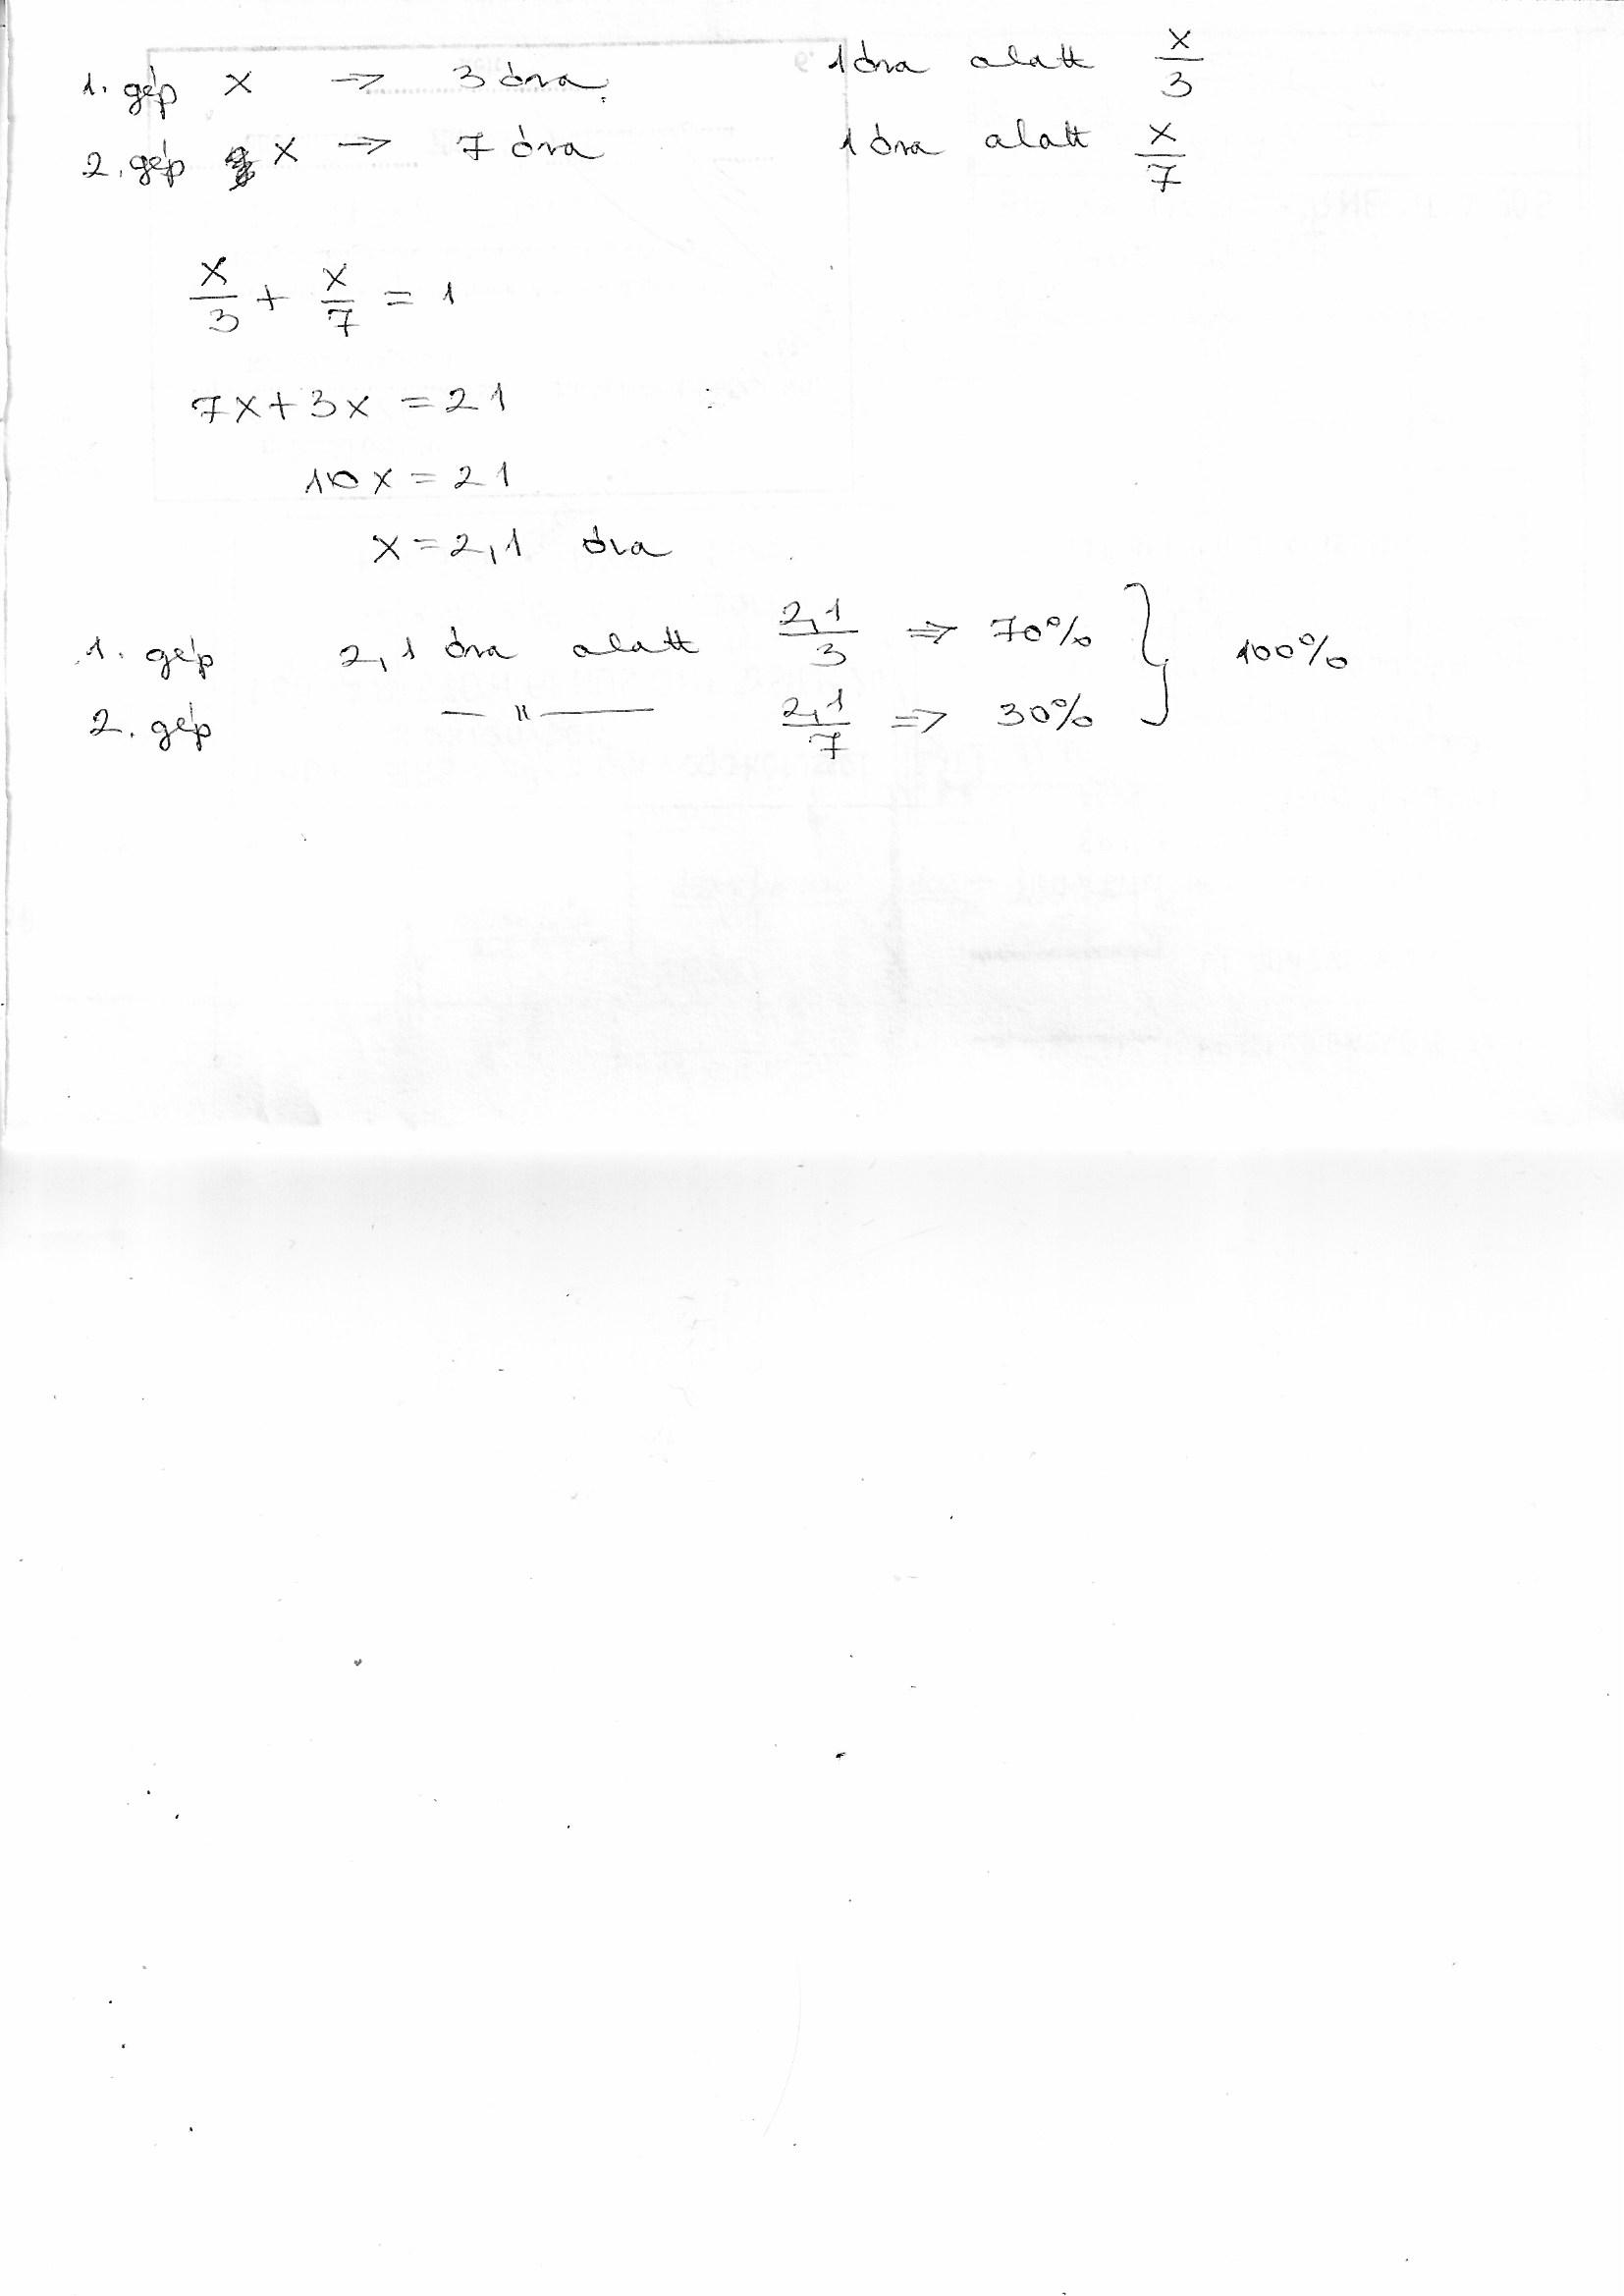 1. gép x => 3 óra 1 óra alatt x/3
2. gép x => 7 óra 1 óra alatt x/7
x/3 + x/7 = 1
7x+3x = 21
10x = 21
x = 2,1 óra
1. gép 2,1 óra alatt 2,1/3 => 70% } 100%
2. gép — " — 2,1/7 => 30%